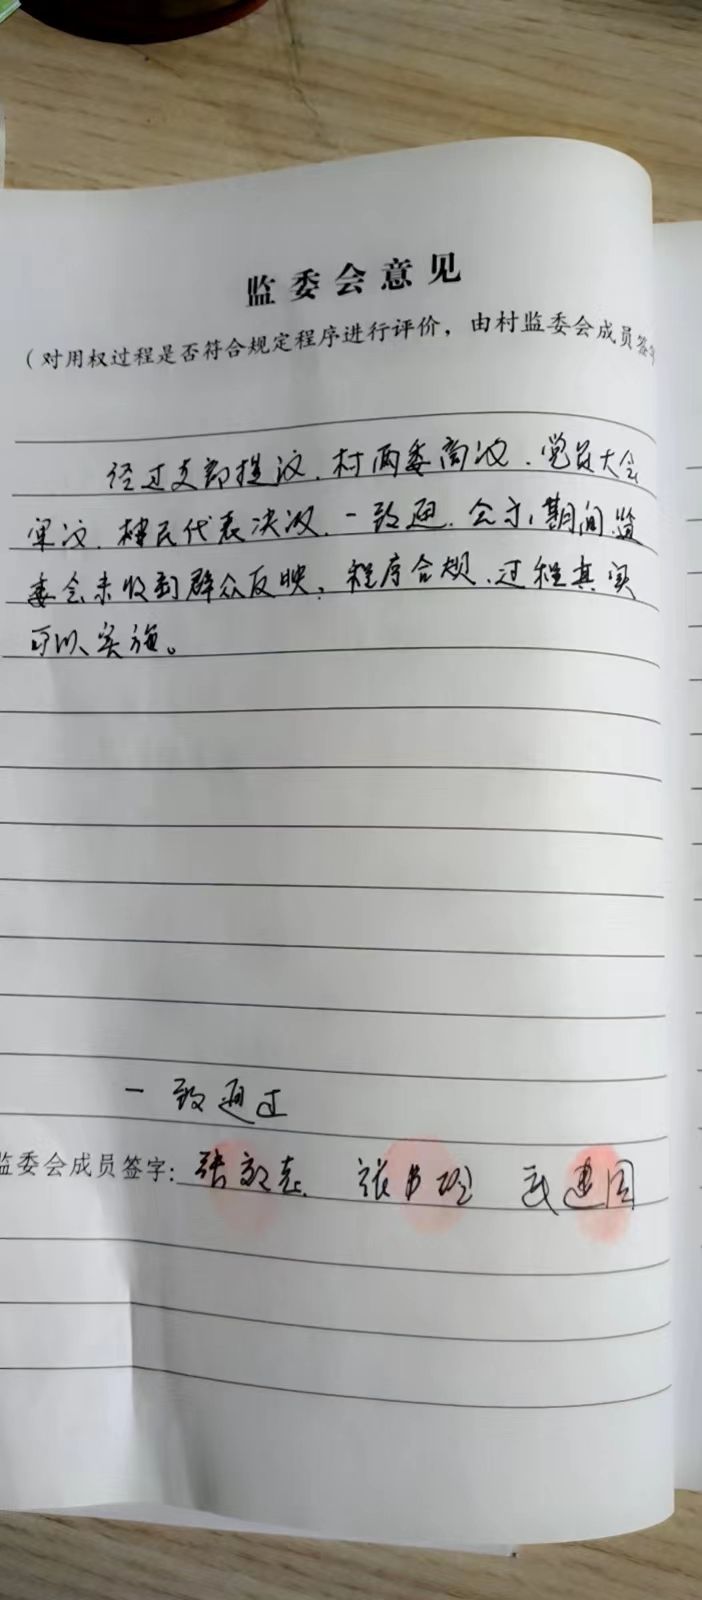 监委会意见
（对用权过程是否符合规定程序进行评价，由村监委会成员签字
经过支部提议、村两委商议、党员大会
审议、村民代表决议、一致通、公示期间监
委会未收到群众反映，程序合规、过程真实
可以实施。
一致通过
监委会成员签字：张 张 武建国